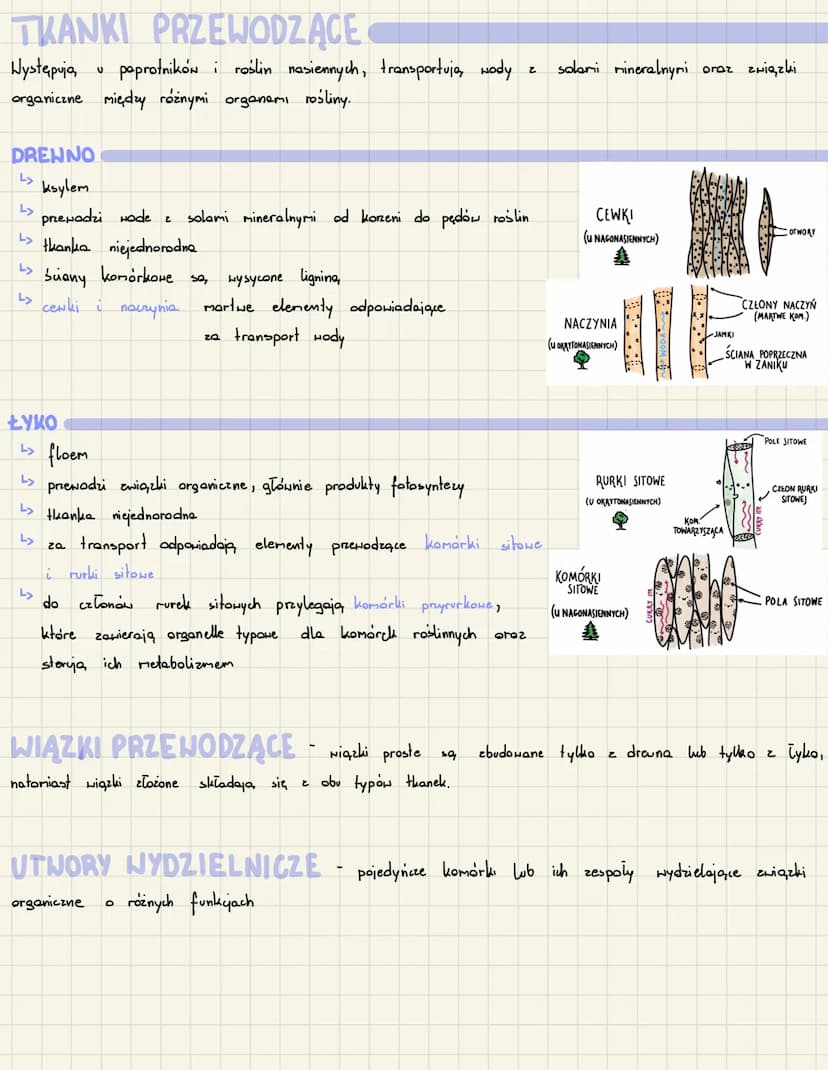 TKANKI PRZEWODZĄCE
Występują u paprotników i roślin nasiennych, transportują wody z solami mineralnymi oraz związki
organiczne między różnymi organami rośliny.
DREWNO
↳ ksylem
↳ przewodzi wodę z solami mineralnymi od korzeni do pędów roślin
↳ tkanka niejednorodna
↳ ściany komórkowe są wysycone ligniną
↳ cewki i naczynia martwe elementy odpowiadające
za transport wody
CEWKI
(U NAGONASIENNYCH)
OTWORY
NACZYNIA
(U OKRYTONASIENNYCH)
WODA
CZŁONY NACZYŃ
(MARTWE KOM.)
JAMKI
ŚCIANA POPRZECZNA
W ZANIKU
ŁYKO
↳ floem
↳ przewodzi związki organiczne, głównie produkty fotosyntezy
↳ tkanka niejednorodna
↳ za transport odpowiadają elementy przewodzące komórki sitowe
i rurki sitowe
↳ do członów rurek sitowych przylegają komórki przyrurkowe,
które zawierają organelle typowe dla komórek roślinnych oraz
sterują ich metabolizmem
RURKI SITOWE
(U OKRYTONASIENNYCH)
POLE SITOWE
CZŁON RURKI
SITOWEJ
KOM.
TOWARZYSZĄCA
CUKRY ITP.
KOMÓRKI
SITOWE
(U NAGONASIENNYCH)
CUKRY ITP.
POLA SITOWE
WIĄZKI PRZEWODZĄCE - wiązki proste są zbudowane tylko z drewna lub tylko z łyko,
natomiast wiązki złożone składają się z obu typów tkanek.
UTWORY WYDZIELNICZE - pojedyńcze komórki lub ich zespoły wydzielające związki
organiczne o różnych funkcjach